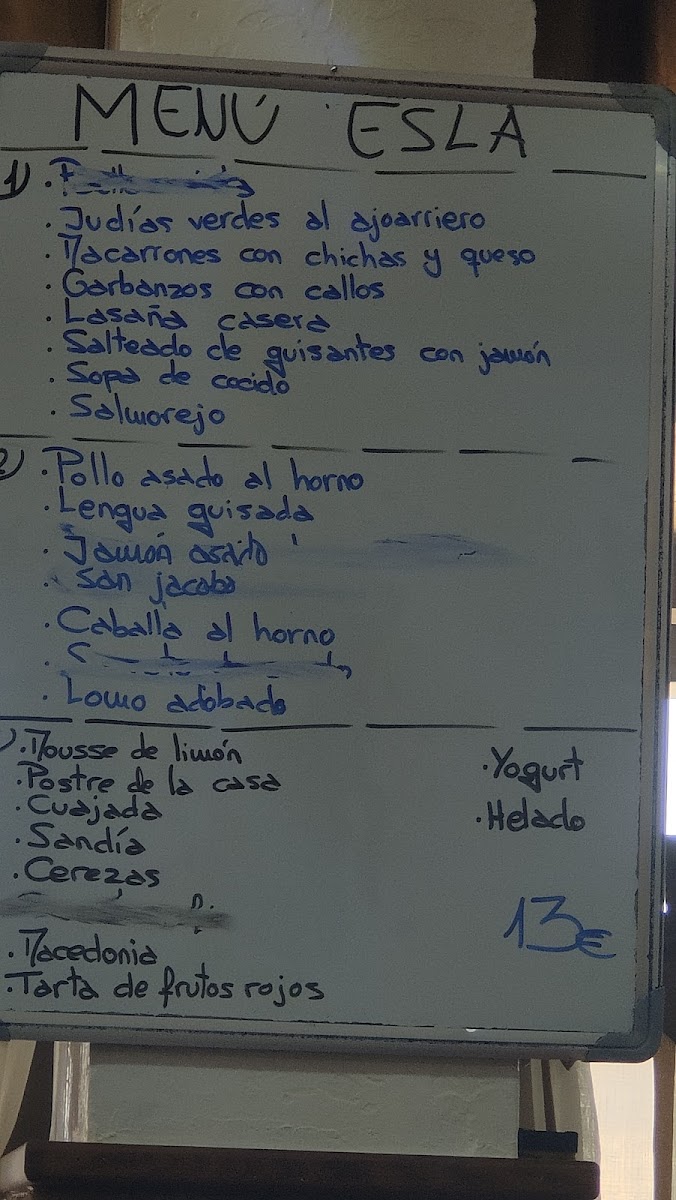 MENÚ ESLA
1)
· Judías verdes al ajoarriero
· Macarrones con chichas y queso
· Garbanzos con callos
· Lasaña casera
· Salteado de guisantes con jamón
· Sopa de cocido
· Salmorejo
2)
· Pollo asado al horno
· Lengua guisada
· Jamón asado
· San jacobo
· Caballa al horno
· Lomo adobado
· Mousse de limón
· Postre de la casa
· Cuajada
· Sandía
· Cerezas
· Macedonia
· Tarta de frutos rojos
· Yogurt
· Helado
13€